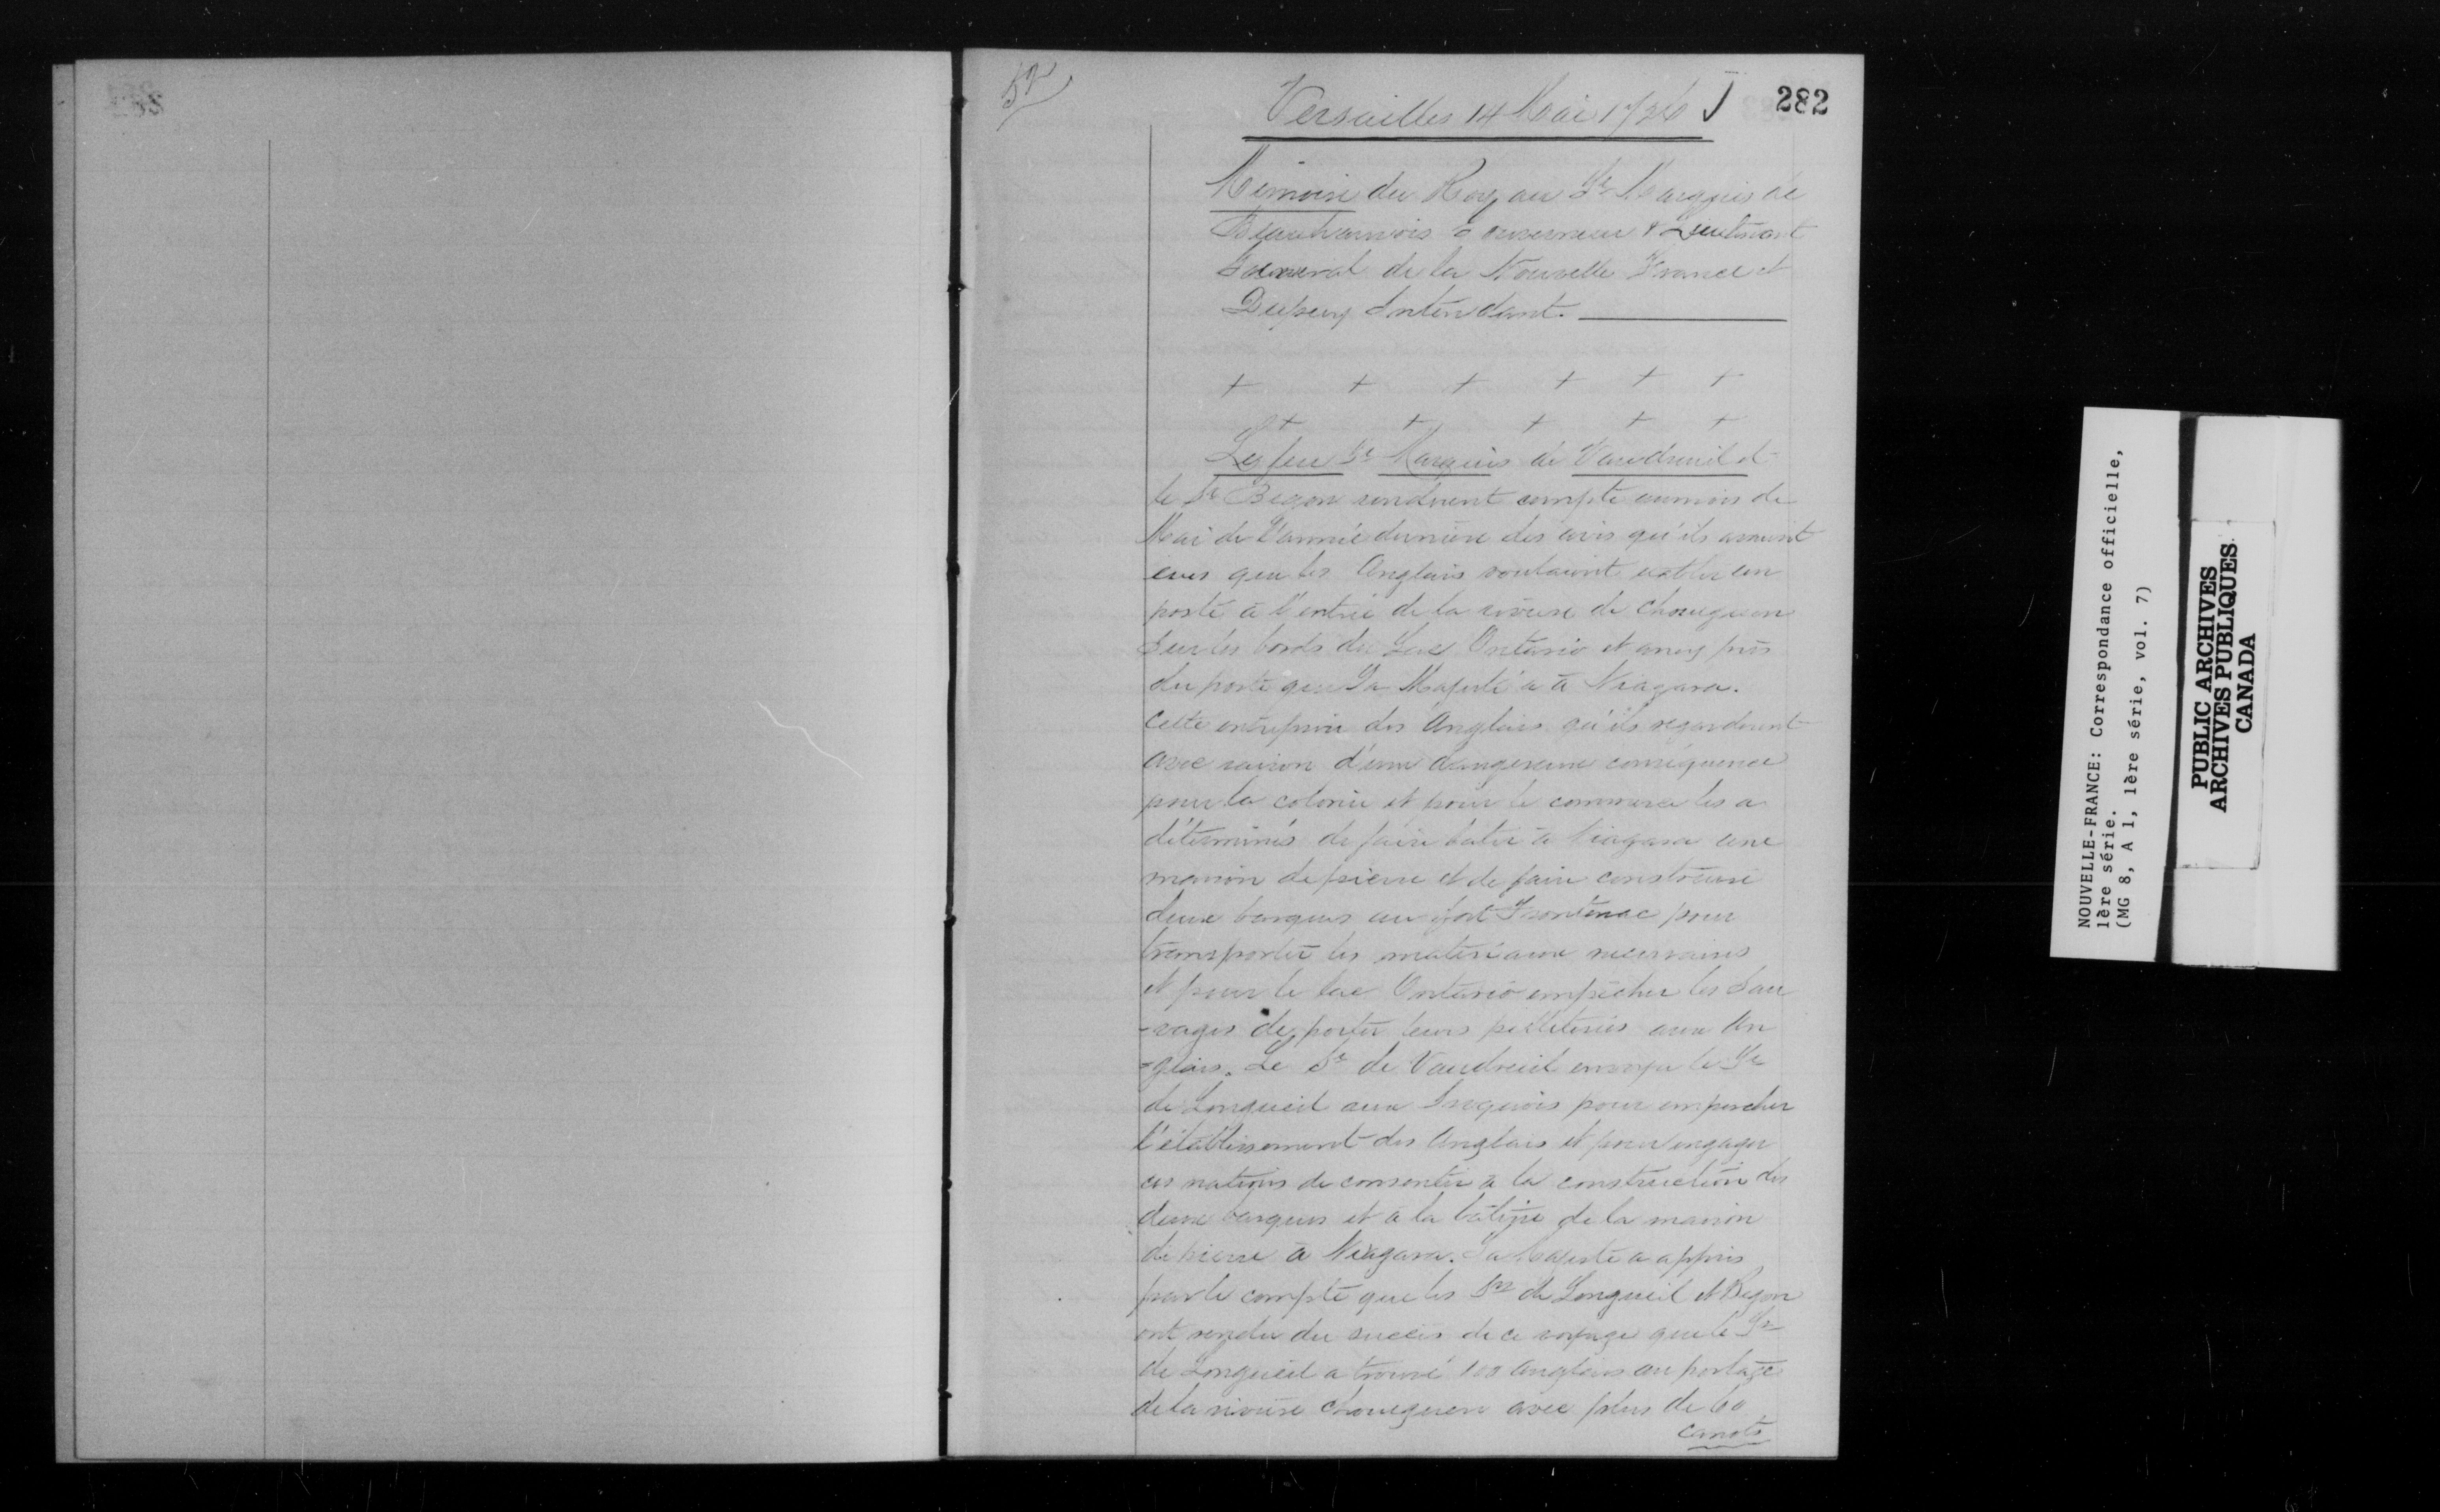 52
282
Versailles 14 Mai 1726
Mémoire du Roy au Sr Marquis de
Beauharnois Gouverneur & Lieutenant
General de la Nouvelle France et
Dupuy Intendant.
+ + + + + +
+ + + + +
Le feu Sr Marquis de Vaudreuil et
le Sr Begon rendirent compte au mois de
Mai de l'année derniere des avis qu'ils avaient
eues que les Anglais voulaient établir un
poste à l'entrée de la rivière de Chouguen
Sur les bords du Lac Ontario et assez près
du poste que Sa Majesté a à Niagara.
Cette entreprise des Anglais qu'ils regarderent
avec raison d'une dangereuse conséquence
pour la colonie et pour le commerce les a
déterminés de faire batir à Niagara une
maison de pierre et de faire construire
deux barques au fort Frontenac pour
transporter les materiaux necessaires
et pour le lac Ontario empêcher les Sau
-vages de porter leurs pelleteries aux An
=glais. Le Sr de Vaudreuil envoya le Sr
de Longueil aux Iroquois pour empescher
l'établissement des Anglais et pour engager
ces nations de consentir à la construction des
deux barques et à la batisse de la maison
de pierre à Niagara. Sa Majesté a appris
par le compte que les Srs de Longueil et Begon
ont rendu du succès de ce voyage que le Sr
de Longueil a trouvé 100 Anglais au portage
de la rivière Choueguen avec plus de 60
canots
NOUVELLE-FRANCE: Correspondance officielle,
1ère série.
(MG 8, A 1, 1ère série, vol. 7)
PUBLIC ARCHIVES
ARCHIVES PUBLIQUES
CANADA